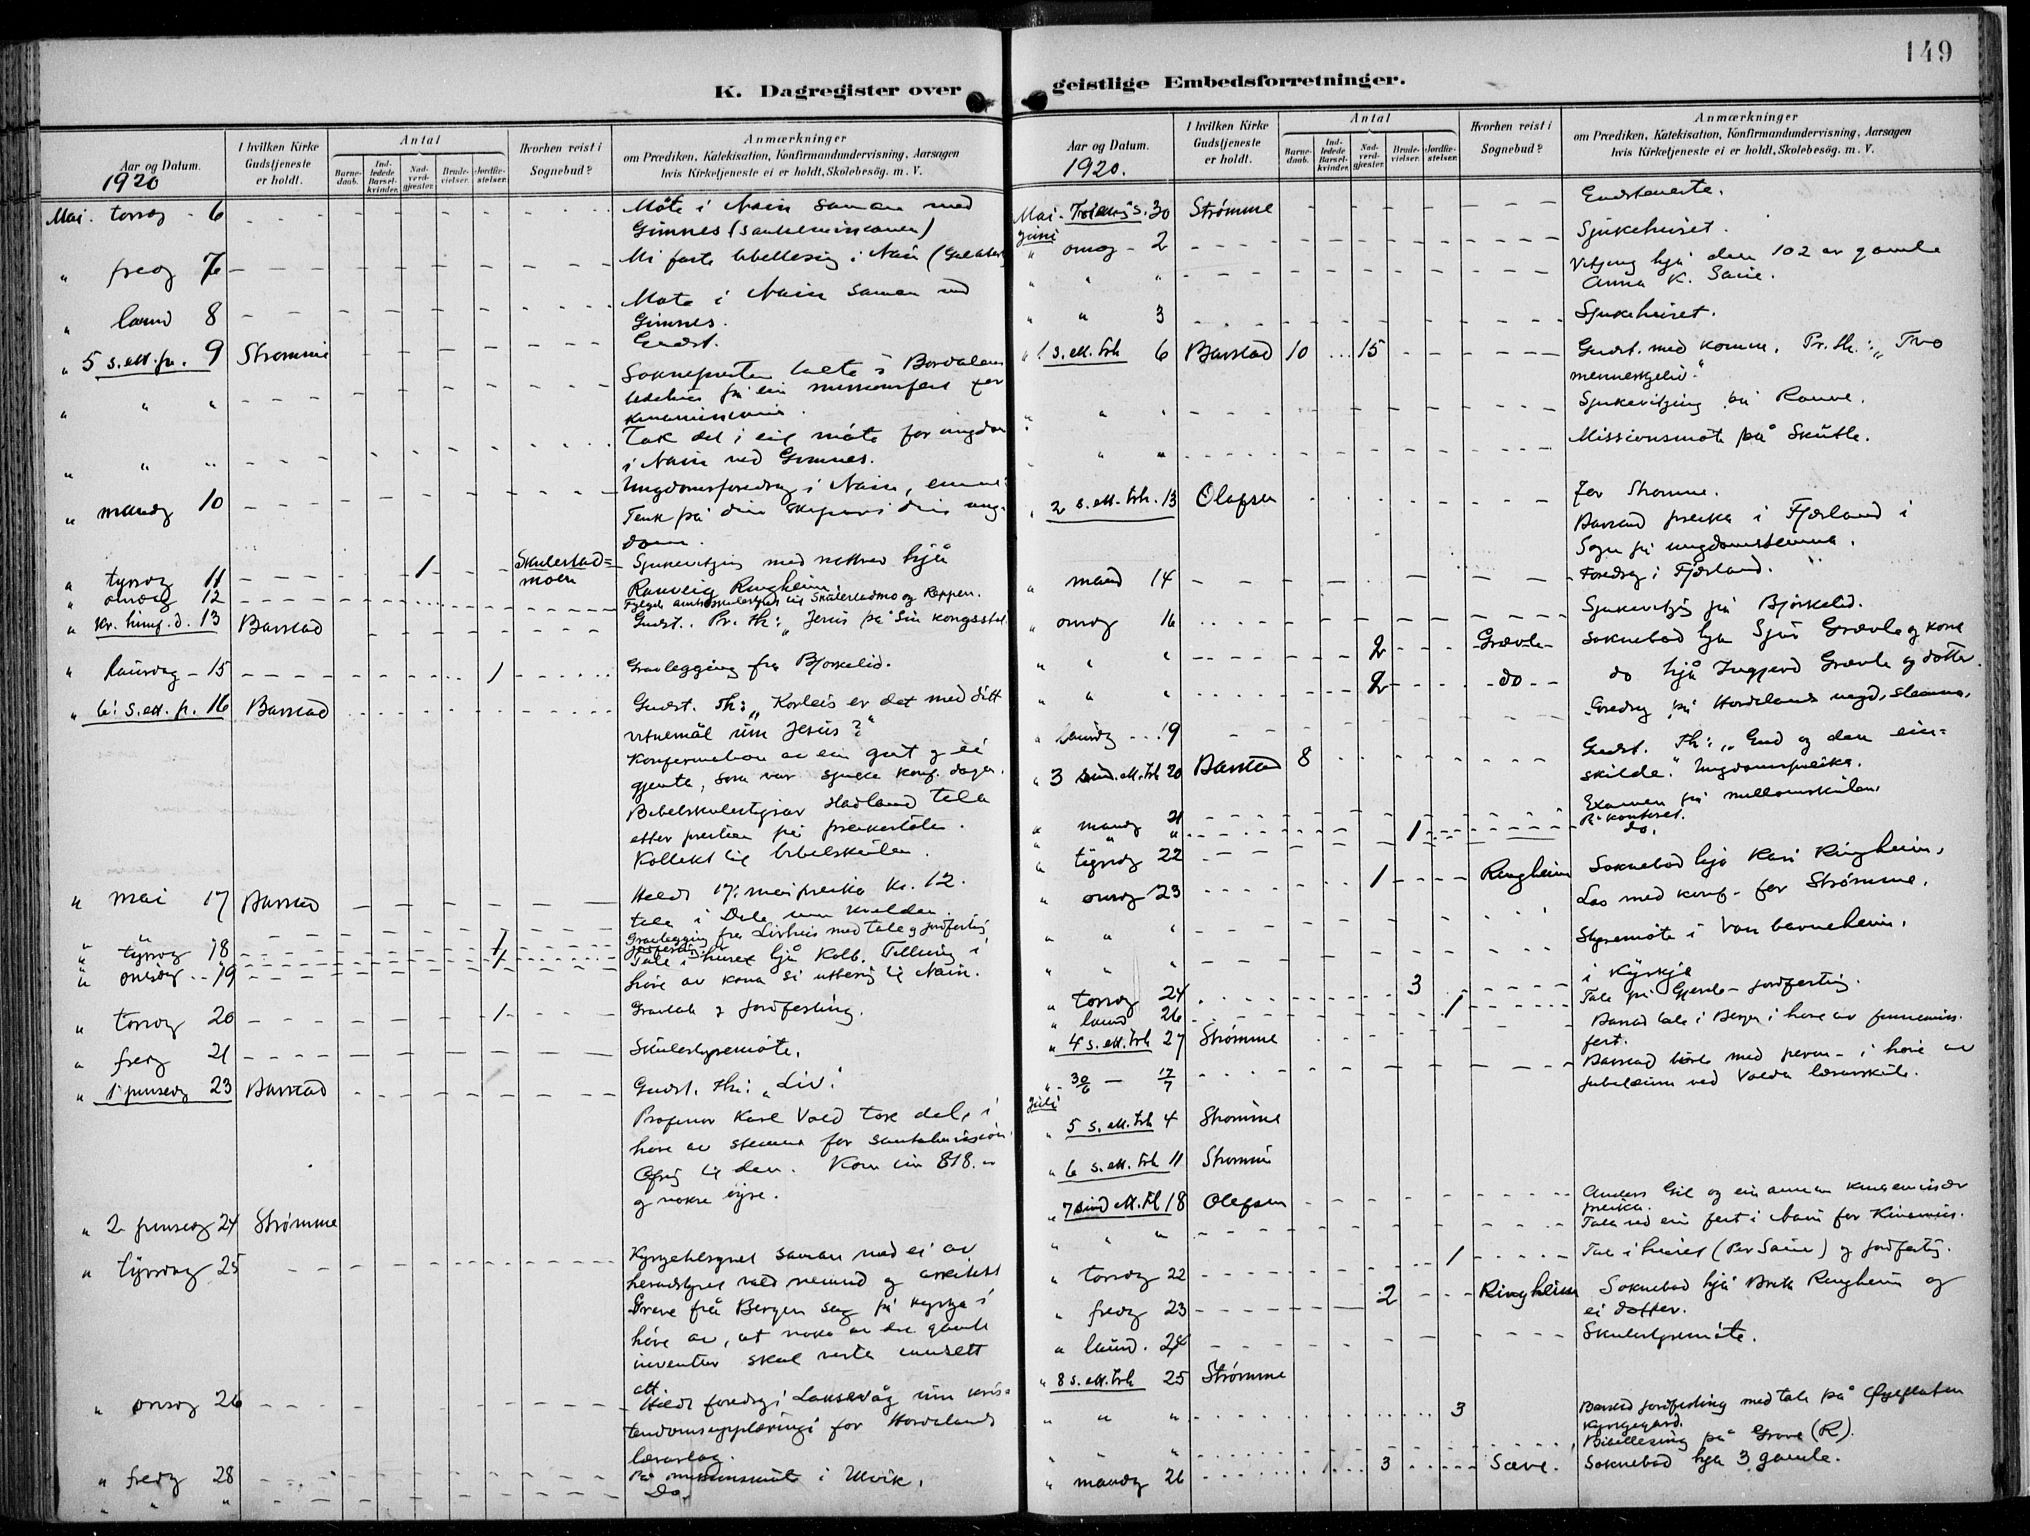 149
K. Dagregister over geistlige Embedsforretninger.
Aar og Datum.
1920
I hvilken Kirke Gudstjeneste er holdt.
Antal
Barne-daab.
Ind-ledede Barsel-kvinder.
Nad-verd-gjester.
Brude-vielser.
Jordfæ-stelser.
Hvorhen reist i Sognebud?
Anmærkninger
om Prædiken, Katekisation, Konfirmandundervisning, Aarsagen
hvis Kirketjeneste ei er holdt, Skolebesøg. m. V.
Mai. torsdg - 6 Møte i Nain saman med
Gimnes
" fredg 7 i Nain
" laurd 8 Møte i Nain saman med
Gimnes.
" 5 s. ett. p. 9 Strømme Gudst.
" " " Soknepresten
" " " Tok del i eit møte for ungdom
i Nain ved Gimnes.
" mandg 10 Ungdomsforedrag i Nain, emne:
Tenk på din skapar i din ung-
dom.
" tyrsdg 11 1 Skulestad-
moen Sjukevitjing med nattverd hjå
Ranveig Ringheim.
" onsdg 12
" Kr. himf. d. 13 Barstad Gudst. Pr. th: "Jesus på sin kongsstol
" laurdag - 15 1 Gravlegging fra Bjørkelid.
" 6: s. ett. p. 16 Barstad Gudst. Th: "Korleis er det med ditt
vitnemål um Jesus?"
Konfirmation av ein gut og ei
gjente, som var sjuke konf. dagen.
Bibelskulestyrar Hadland tala
etter preika på preikestolen.
Kollekt til bibelskulen.
" mai 17 Barstad Heldt 17: mai preika kl. 12.
tala i
" tyrsdg 18 1 Gravlegging fra med tale og jordfesting
" onsdg 19 1 Tale i huset hjå Kolb. i
høve av kona si til Nain.
" torsdg 20 1 Gravtale og jordfesting.
" fredg 21 Skulestyremøte.
" 1 pinsedg 23 Barstad Gudst. Th: "Liv".
Professor Karl Vold tok del i
høve av stemna for santalmisjon.
Ofring til den. Kom inn 818.-
og nokre øyre.
" 2 pinsedg 24 Strømme
" tyrsdag 25 Kyrgjetilsynet saman med ei av
heradstyret vald nemnd og arkitekt
Greve frå Bergen såg på kyrkja i
høve av, at noko av det gamle
inventar skal verta innsett
att.
" onsdg 26 Heldt foredrag i Laksevåg um kris-
tendomsupplæringi for Hordaland
lærarlag.
" fredg 28 På misjonsmøte i Ulvik.
" " " Do.
Aar og Datum.
1920.
I hvilken Kirke Gudstjeneste er holdt.
Antal
Barne-daab.
Ind-ledede Barsel-kvinder.
Nad-verd-gjester.
Brude-vielser.
Jordfæ-stelser.
Hvorhen reist i Sognebud?
Anmærkninger
om Prædiken, Katekisation, Konfirmandundervisning, Aarsagen
hvis Kirketjeneste ei er holdt, Skolebesøg. m. V.
Mai. s. 30 Strømme Gudsteneste.
Juni
" onsdg - 2 Sjukehuset.
" " " Vitjing hjå den 102 år gamle
Anna K. Saue.
" " 3 Sjukehuset.
" 1 s. ett. trh 6 Barstad 10 15 Gudst. med komm. Pr. th.: "Tvo
menneskjeliv."
" " " Sjukevitjing på Rauve.
" " " Missionsmøte på Skutle.
" 2 s. ett. trh. 13 Olafsen for Strømme.
Barstad preika i Fjærland i
Sogn på ungdomsstemna.
" mand 14 Foredrag i Fjærland.
" onsdg 16 Sjukevitjing på Bjørkelid.
" " " 2 Grævle Soknebod hjå Sjur Grævle og kona
" " " 2 do do hjå Ingjerd Grævle og dotter.
" laurdg 19 Foredrag på Hordalands ungd. stemna.
" 3 sund. ett. trh 20 Barstad 8 Gudst. Th: "Gud og den ein-
skilde." Ungdomspreika.
" mandg 21 Examen på millomskulen.
" " " 1 På kontoret.
" tyrsdg 22 do.
" onsdg 23 1 Ringheim Soknebod hjå Kari Ringheim.
" " " Las med konf. for Strømme.
" " " Styremøte i Voss barneheim.
" torsdg 24 3 i Kyrkja
" laurd 26 1 Tale på Gjerde - jordfesting.
" 4 s. ett. trh 27 Strømme Barstad tala i Bergen i høve av
fest.
" 30/6 — 17/7 Barstad med perm. i høve av
jubilæum ved Volda lærarskule.
Juli
" 5 s. ett. trh 4 Strømme
" 6 s. ett. trh 11 Strømme
" 7 sund ett. trh 18 Olafsen Anders og ein annan kinamisjonær
preika.
" " " Tala ved ein fest i Nain for Kinamis.
" torsdg 22 1 Tale i huset (Per Saue) og jordfestg.
" fredg 23 2 Ringheim Soknebod hjå Brita Ringheim og
ei dotter.
" laurd. 24 Skulestyremøte.
" 8 s. ett. trh 25 Strømme
" " " 3 Barstad jordfesting med tale på
Kyrkjegard.
" " Bibellesing på Grove (R).
" mandg 26 3 Sæve. Soknebod hjå 3 gamle.